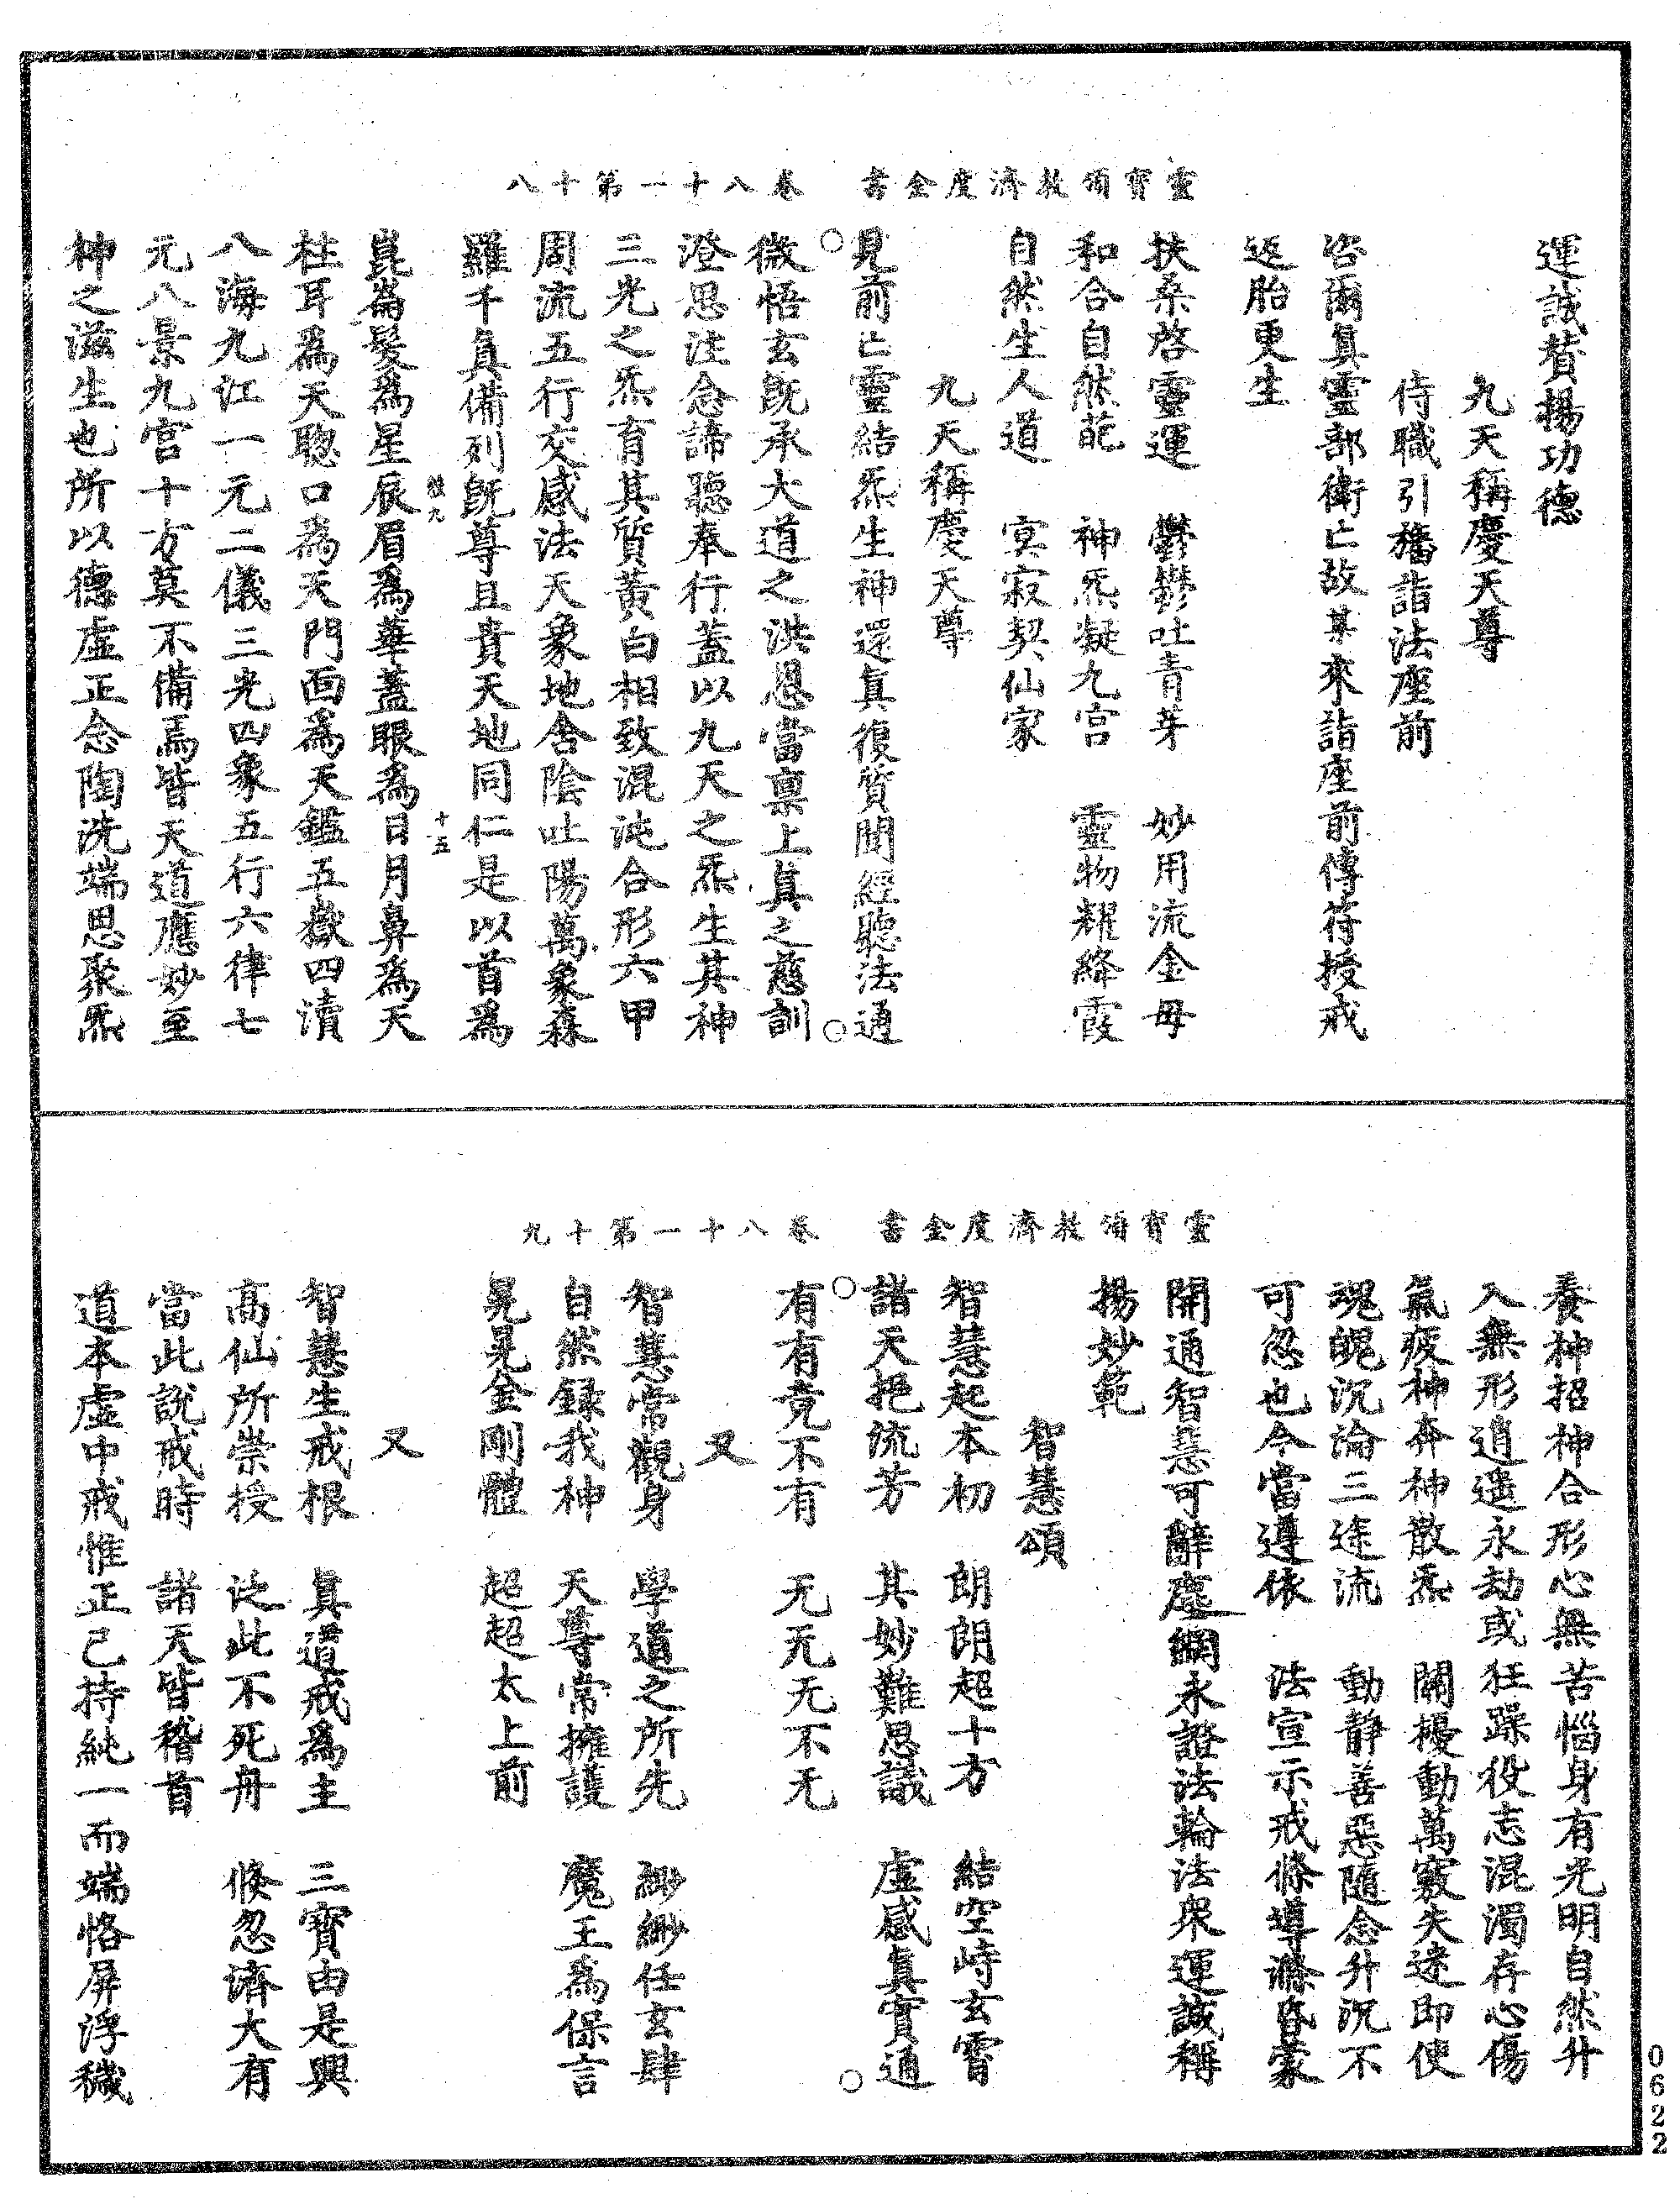 靈寶領教濟度金書　卷八十一第十八
運誠贊揚功德
九天稱慶天尊
侍職引旛詣法座前
咨爾真靈部衛亡故某來詣座前傳符授戒
返胎更生
扶桑啓靈運　鬱鬱吐青芽　妙用流金母
和合自然葩　神炁凝九宮　靈物耀絳霞
自然生人道　寂契仙家
九天稱慶天尊
見前亡靈結炁生神還真復質聞經聽法通
微悟玄既承大道之洪恩當稟上真之慈訓
澄思注念諦聽奉行蓋以九天之炁生其神
三光之炁育其質黃白相致混沌合形六甲
周流五行交感法天象地含陰吐陽萬象森
羅千真備列既尊且貴天地同仁是以首為
九　十五
崑崙髮為星辰眉為華蓋眼為日月鼻為天
柱耳為天聰口為天門面為天鑑五嶽四瀆
八海九江一元二儀三光四象五行六律七
元八景九宮十方莫不備焉皆天道應妙至
神之滋生也所以德虛正念陶洗端思聚炁
靈寶領教濟度金書　卷八十一第十九
養神招神合形心無苦惱身有光明自然升
入無形逍遙永劫或狂躁役志混濁存心傷
氣疲神奔神散炁　關擾動萬竅失迷即使
魂魄沉淪三途流　動靜善惡隨念升沉不
可忽也今當遵依　法宣示戒條導滌昏蒙
開通智慧可辭塵網永證法輪法衆運誠稱
揚妙範
智慧頌
智慧起本初　朗朗超十方　結空峙玄霄
諸天挹流芳　其妙難思議　虛感真實通
有有竟不有　无无无不无
又
智慧常觀身　學道之所先　緲緲任玄肆
自然錄我神　天尊常擁護　魔王為保言
晃晃金剛體　超超太上前
又
智慧生戒根　真道戒為主　三寶由是興
高仙所崇授　泛此不死舟　倏忽濟大有
當此說戒時　諸天皆稽首
道本虛中戒惟正己持純一而端恪屏浮穢
0622